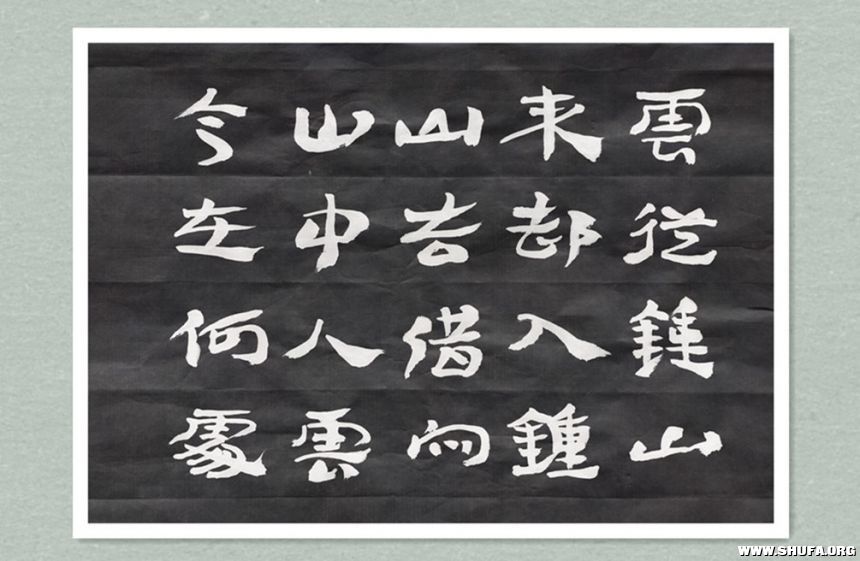 雲從鍾山
来却入鍾
山去借問
山中人雲
今在何處
WWW.SHUFA.ORG